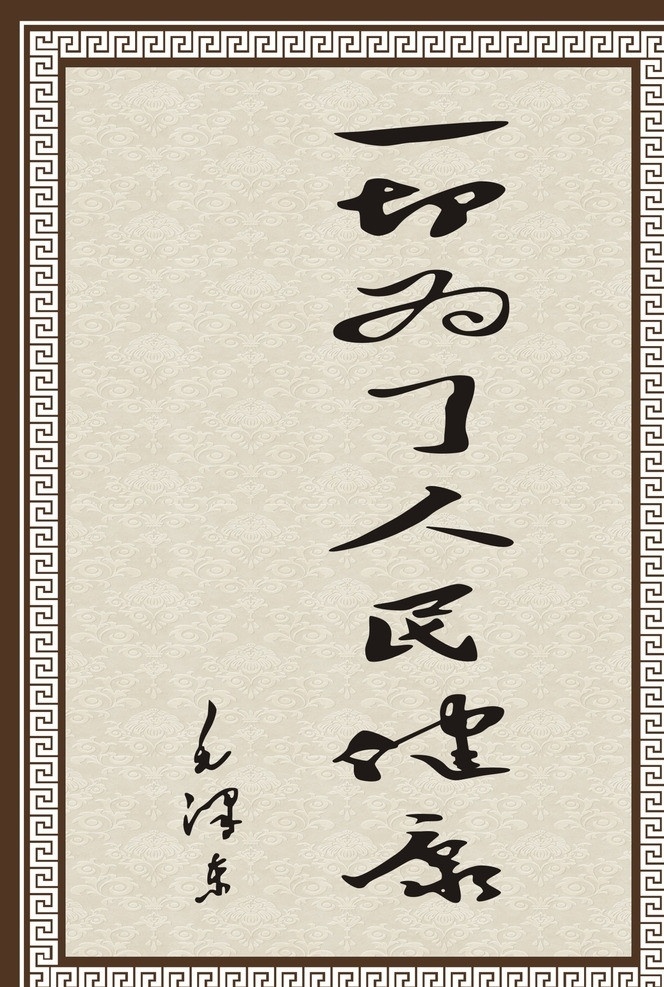 一切为了人民健康
毛泽东